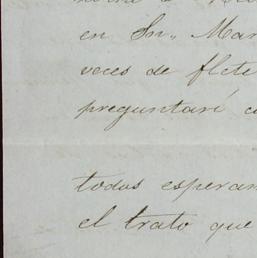 en Sn,, Mar
veces de flete
preguntaré c
todos esperan
el trato que